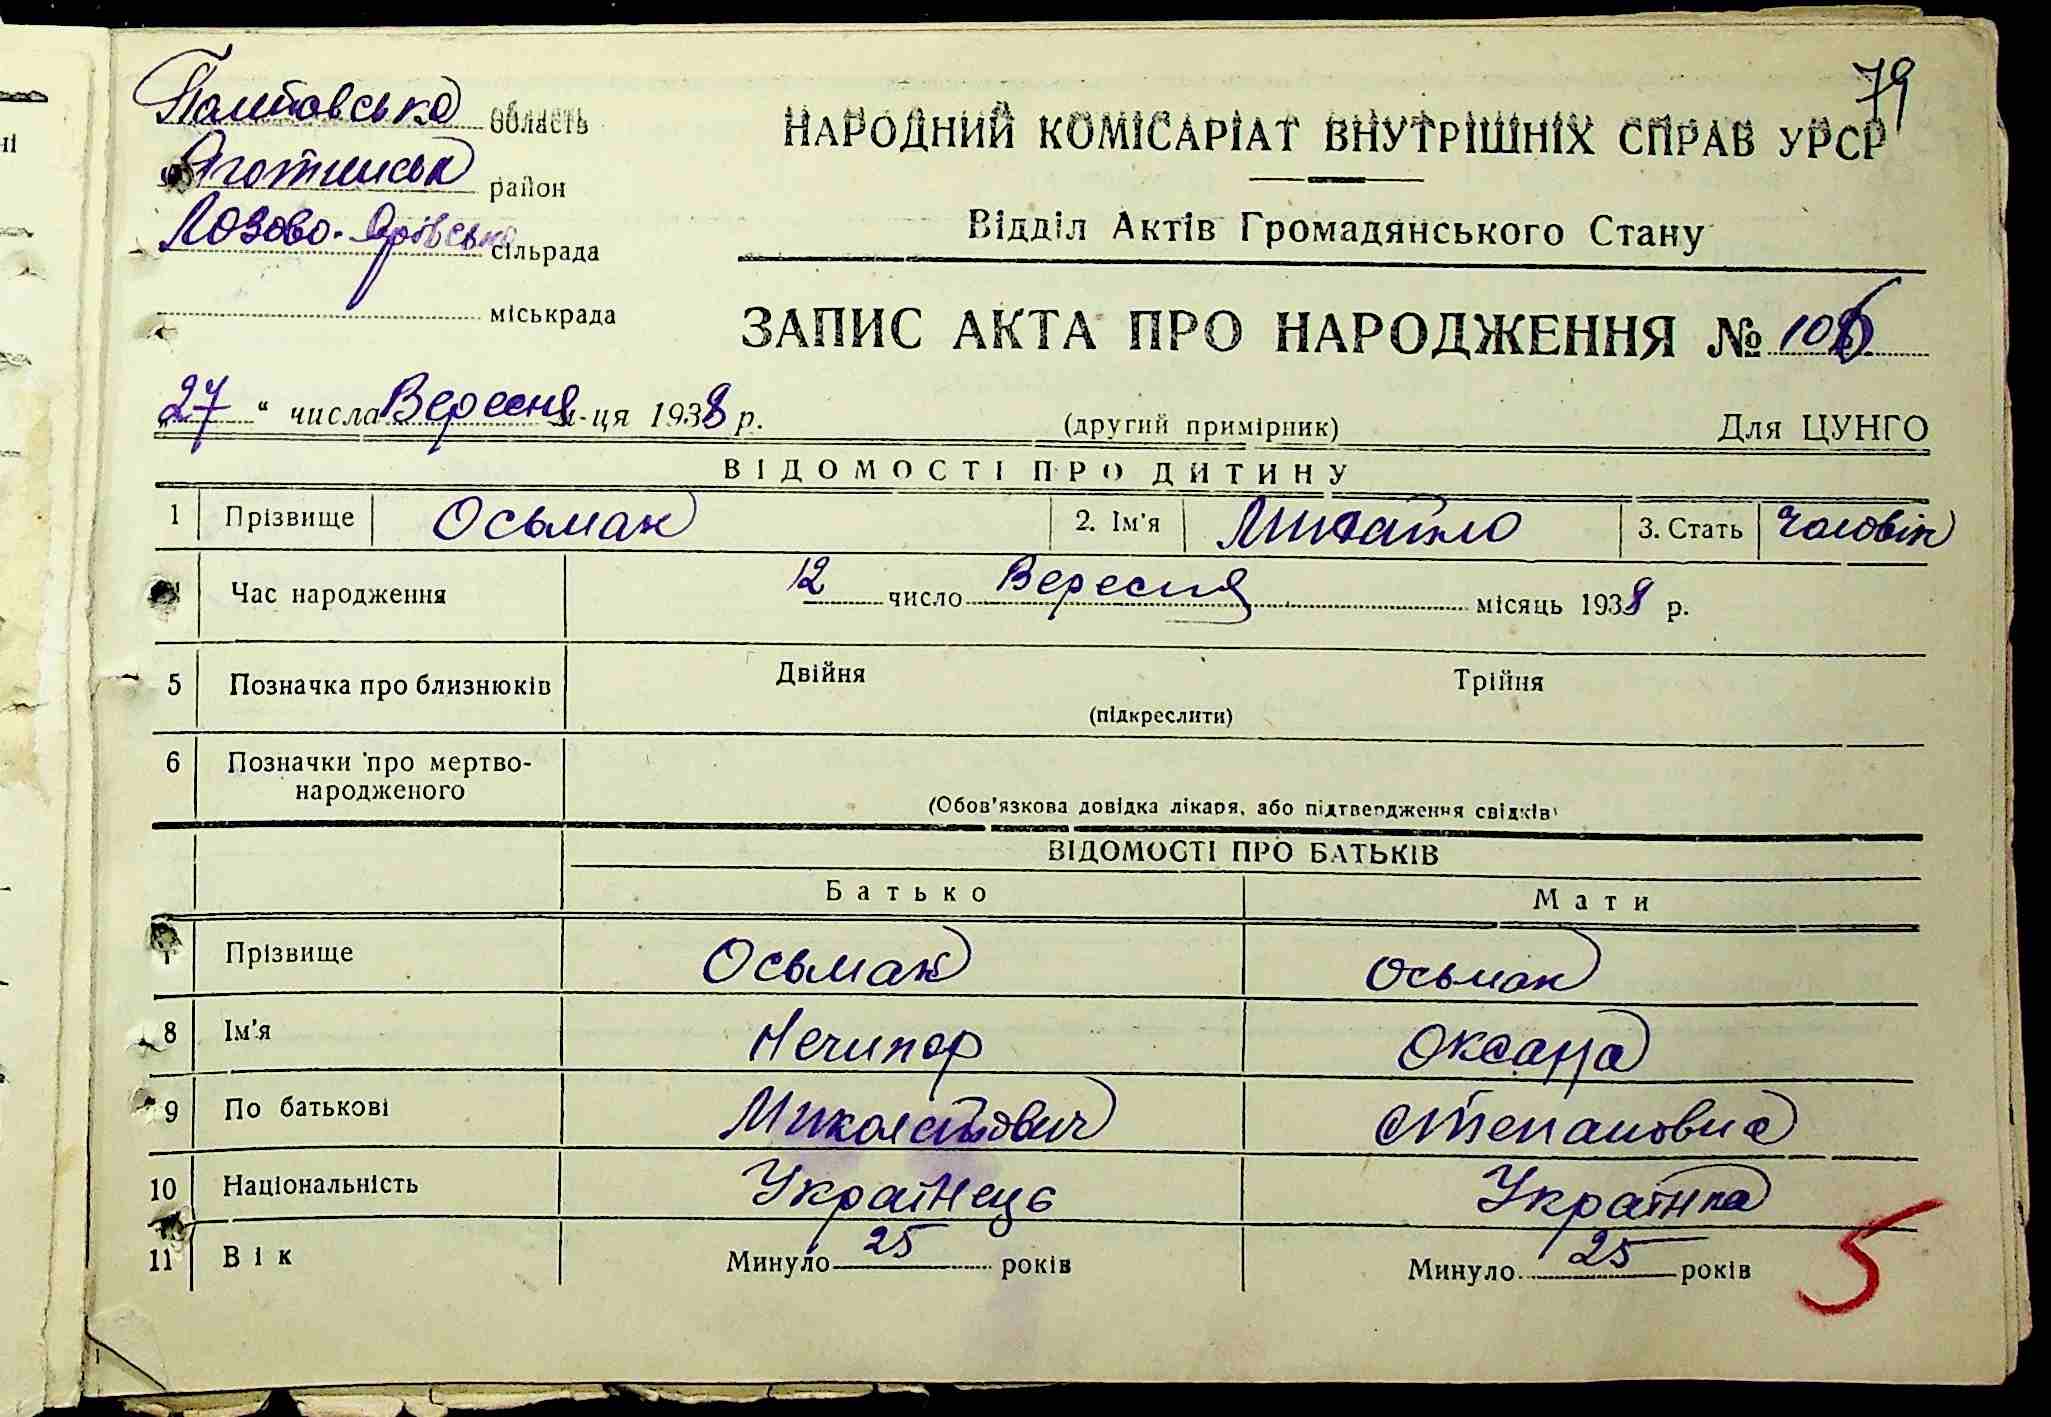 79
Полтовська область
Яготинськ район
Лозово-Ярівська сільрада
міськрада
НАРОДНИЙ КОМІСАРІАТ ВНУТРІШНІХ СПРАВ УРСР
Відділ Актів Громадянського Стану
ЗАПИС АКТА ПРО НАРОДЖЕННЯ №
27 " числа Вересня м-ця 1938 р. (другий примірник) Для ЦУНГО
ВІДОМОСТІ ПРО ДИТИНУ
1 Прізвище Осьмак 2. Ім'я Михайло 3. Стать Чоловік
Час народження 12 число Вересня місяць 1938 р.
5 Позначка про близнюків Двійня Трійня
(підкреслити)
6 Позначки про мертво-
народженого
(Обов'язкова довідка лікаря, або підтвердження свідків)
ВІДОМОСТІ ПРО БАТЬКІВ
Батько Мати
Прізвище Осьмак Осьмак
8 Ім'я Нечипор Оксана
9 По батькові Миколайович Степановна
10 Національність Українець Українка
11 Вік Минуло 25 років Минуло 25 років
5